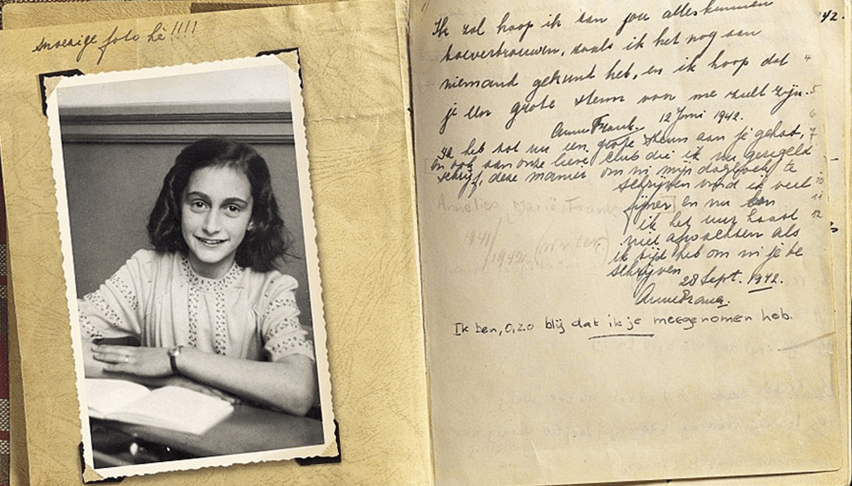 snoezige foto hè!!!!
Ik zal hoop ik aan jou alles kunnen
42.
toevertrouwen, zoals ik het nog aan
niemand gekund heb, en ik hoop dat
4
je een grote steun voor me zult zijn.
5
Anne Frank. 12 Juni 1942.
6
Ik heb tot nu een grote steun aan je gehad,
7
en ook aan onze lieve club die ik nu geregeld
schrijf, deze manier om in mijn dagboek te
schrijven vind ik veel
10
fijner en nu kan
11
ik het uur haast
12
niet afwachten als
ik tijd heb om in je te
schrijven
28 Sept. 1942.
Anne Frank.
Ik ben, o, zo blij dat ik je meegenomen heb.
Annelies Marie Frank
1941/
1942. (Winter)